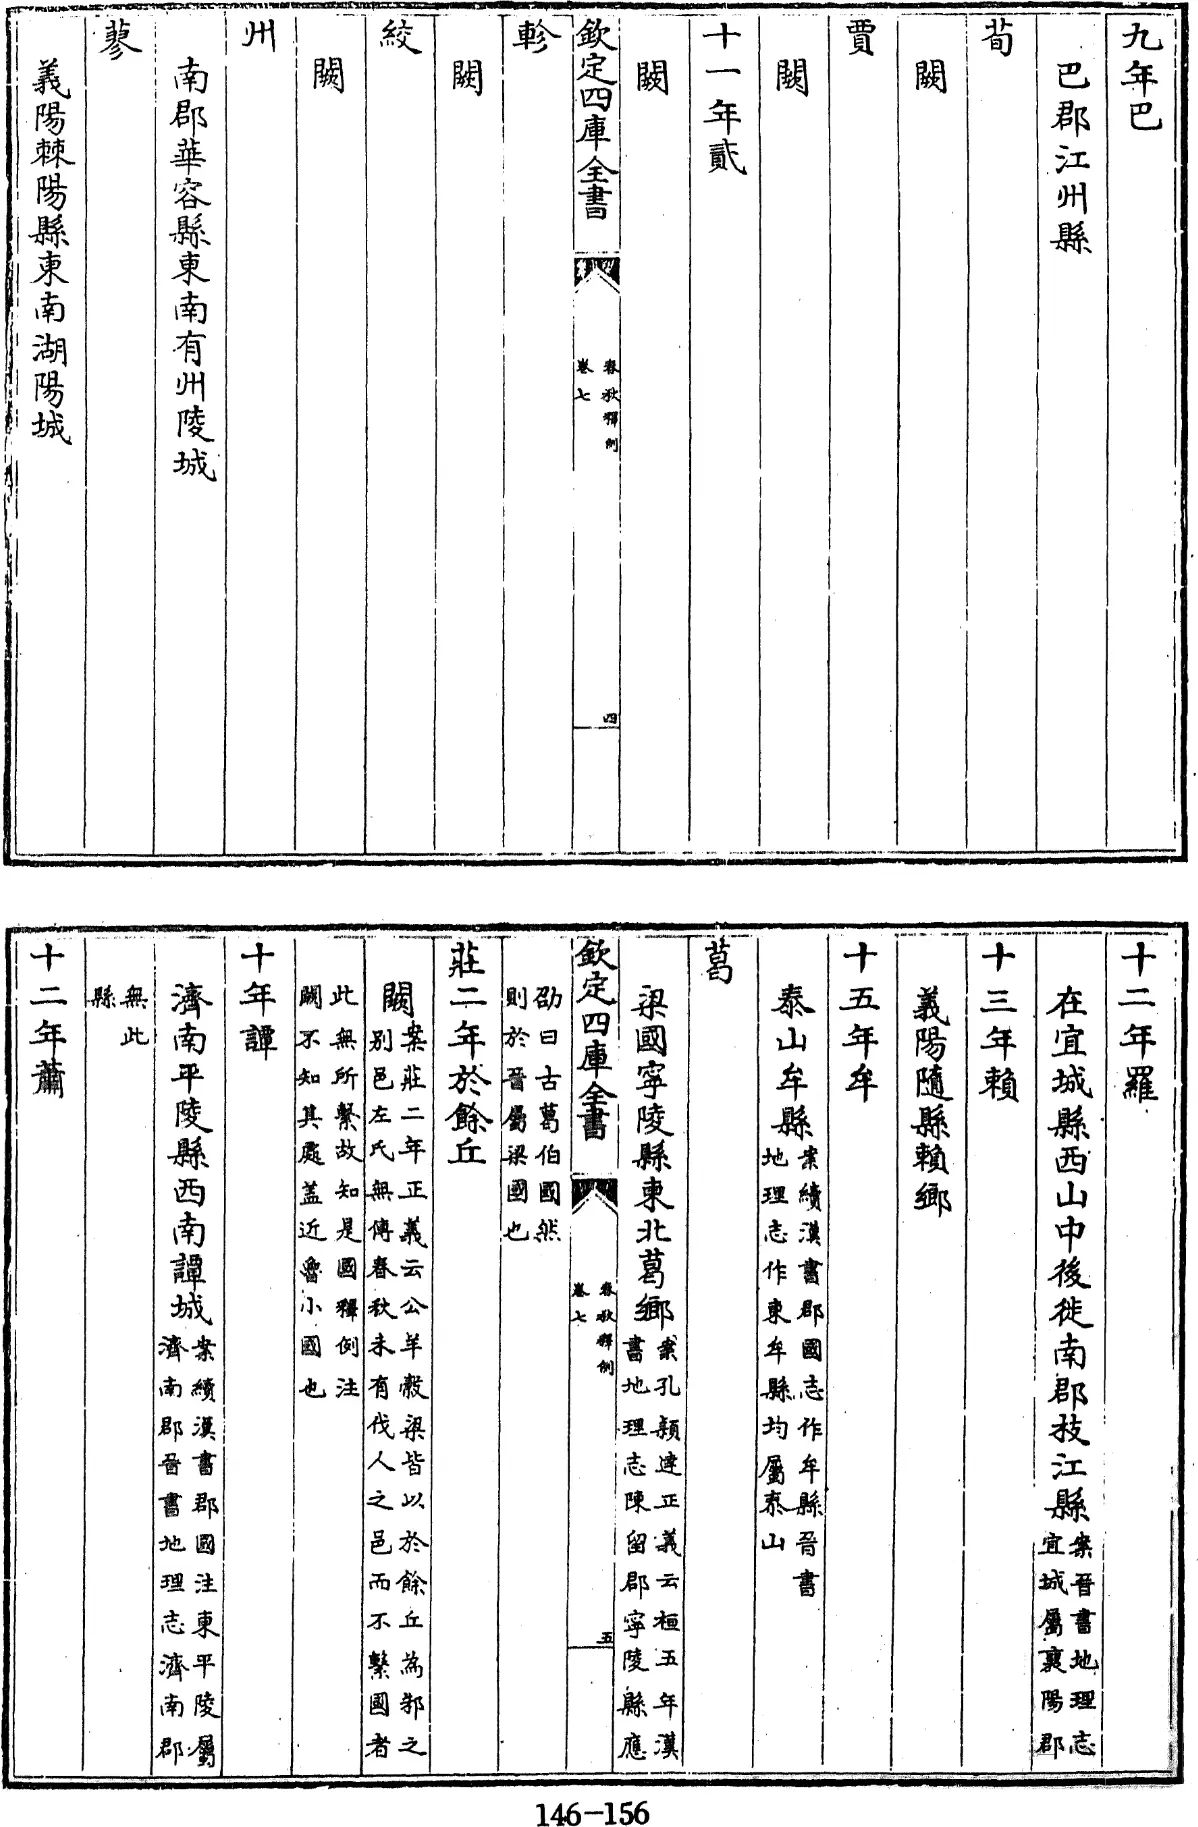 九年巴
巴郡江州縣
荀
闕
賈
闕
十一年貳
闕
欽定四庫全書
春秋釋例
卷七
四
軫
闕
絞
闕
州
南郡華容縣東南有州陵城
蓼
義陽棘陽縣東南湖陽城
十二年羅
在宜城縣西山中後徙南郡枝江縣案晉書地理志
宜城屬襄陽郡
十三年賴
義陽隨縣賴鄉
十五年牟
泰山牟縣案續漢書郡國志作牟縣晉書
地理志作東牟縣均屬泰山
葛
梁國寧陵縣東北葛鄉案孔穎達正義云桓五年漢
書地理志陳留郡寧陵縣應
欽定四庫全書
春秋釋例
卷七
五
劭曰古葛伯國然
則於晉屬梁國也
莊二年於餘丘
闕案莊二年正義云公羊穀梁皆以於餘丘為邾之
别邑左氏無傳春秋未有伐人之邑而不繫國者
此無所繫故知是國釋例注
闕不知其處蓋近魯小國也
十年譚
濟南平陵縣西南譚城案續漢書郡國注東平陵屬
濟南郡晉書地理志濟南郡
無此
縣
十二年蕭
146-156